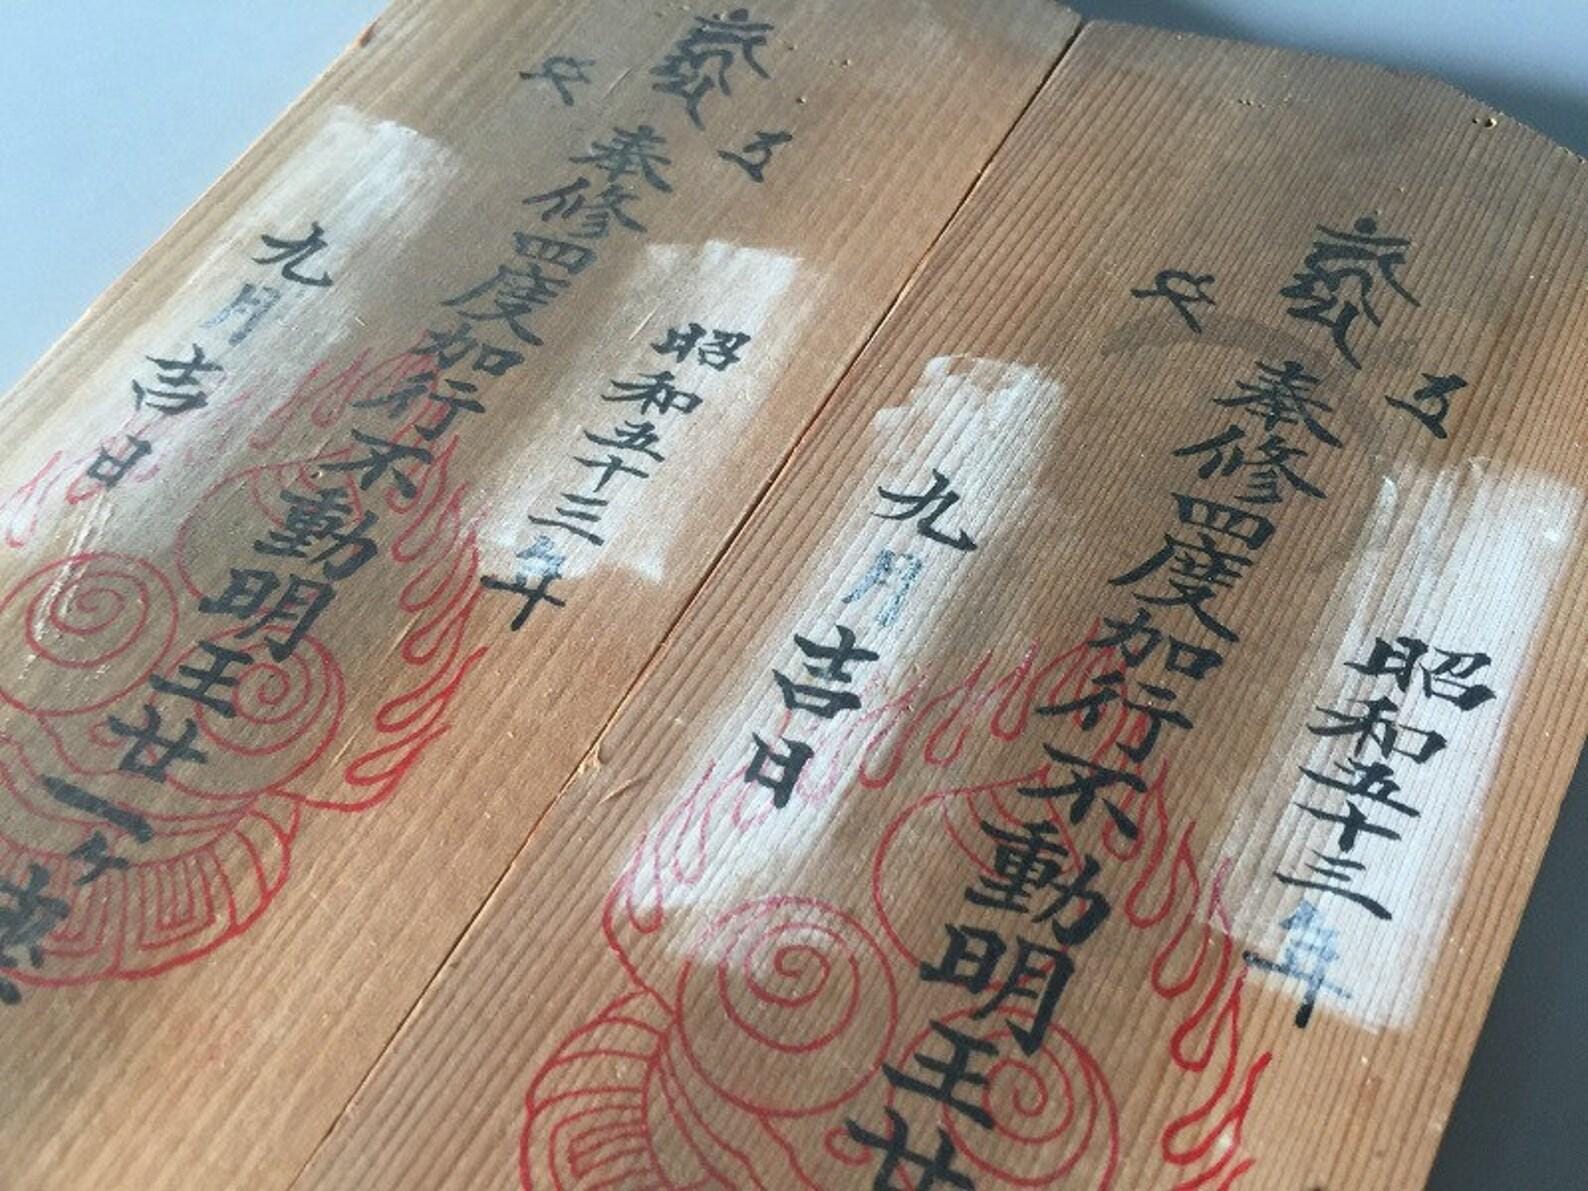 昭和五十三年
奉修四度加行不動明王廿
九月吉日
昭和五十三年
奉修四度加行不動明王廿一ケ
九月吉日